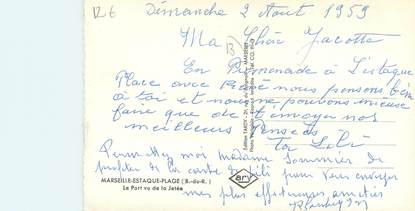 R6
Dimanche 2 Aout 1959
Ma Chère Jacotte
13
En Promenade à L'Estaque
Place avec nous pensons bien
à toi et nous ne pouvons mieux
faire que de t'envoyer nos
meilleurs Pensées
Ta Lili
Permettez moi Madame Sommier de
profiter de la carte de Lili pour vous envoyer
mes plus affectueuses amitiés
MARSEILLE-ESTAQUE-PLAGE (B.-du-R.)
Le Port vu de la Jetée
Edition TARDY